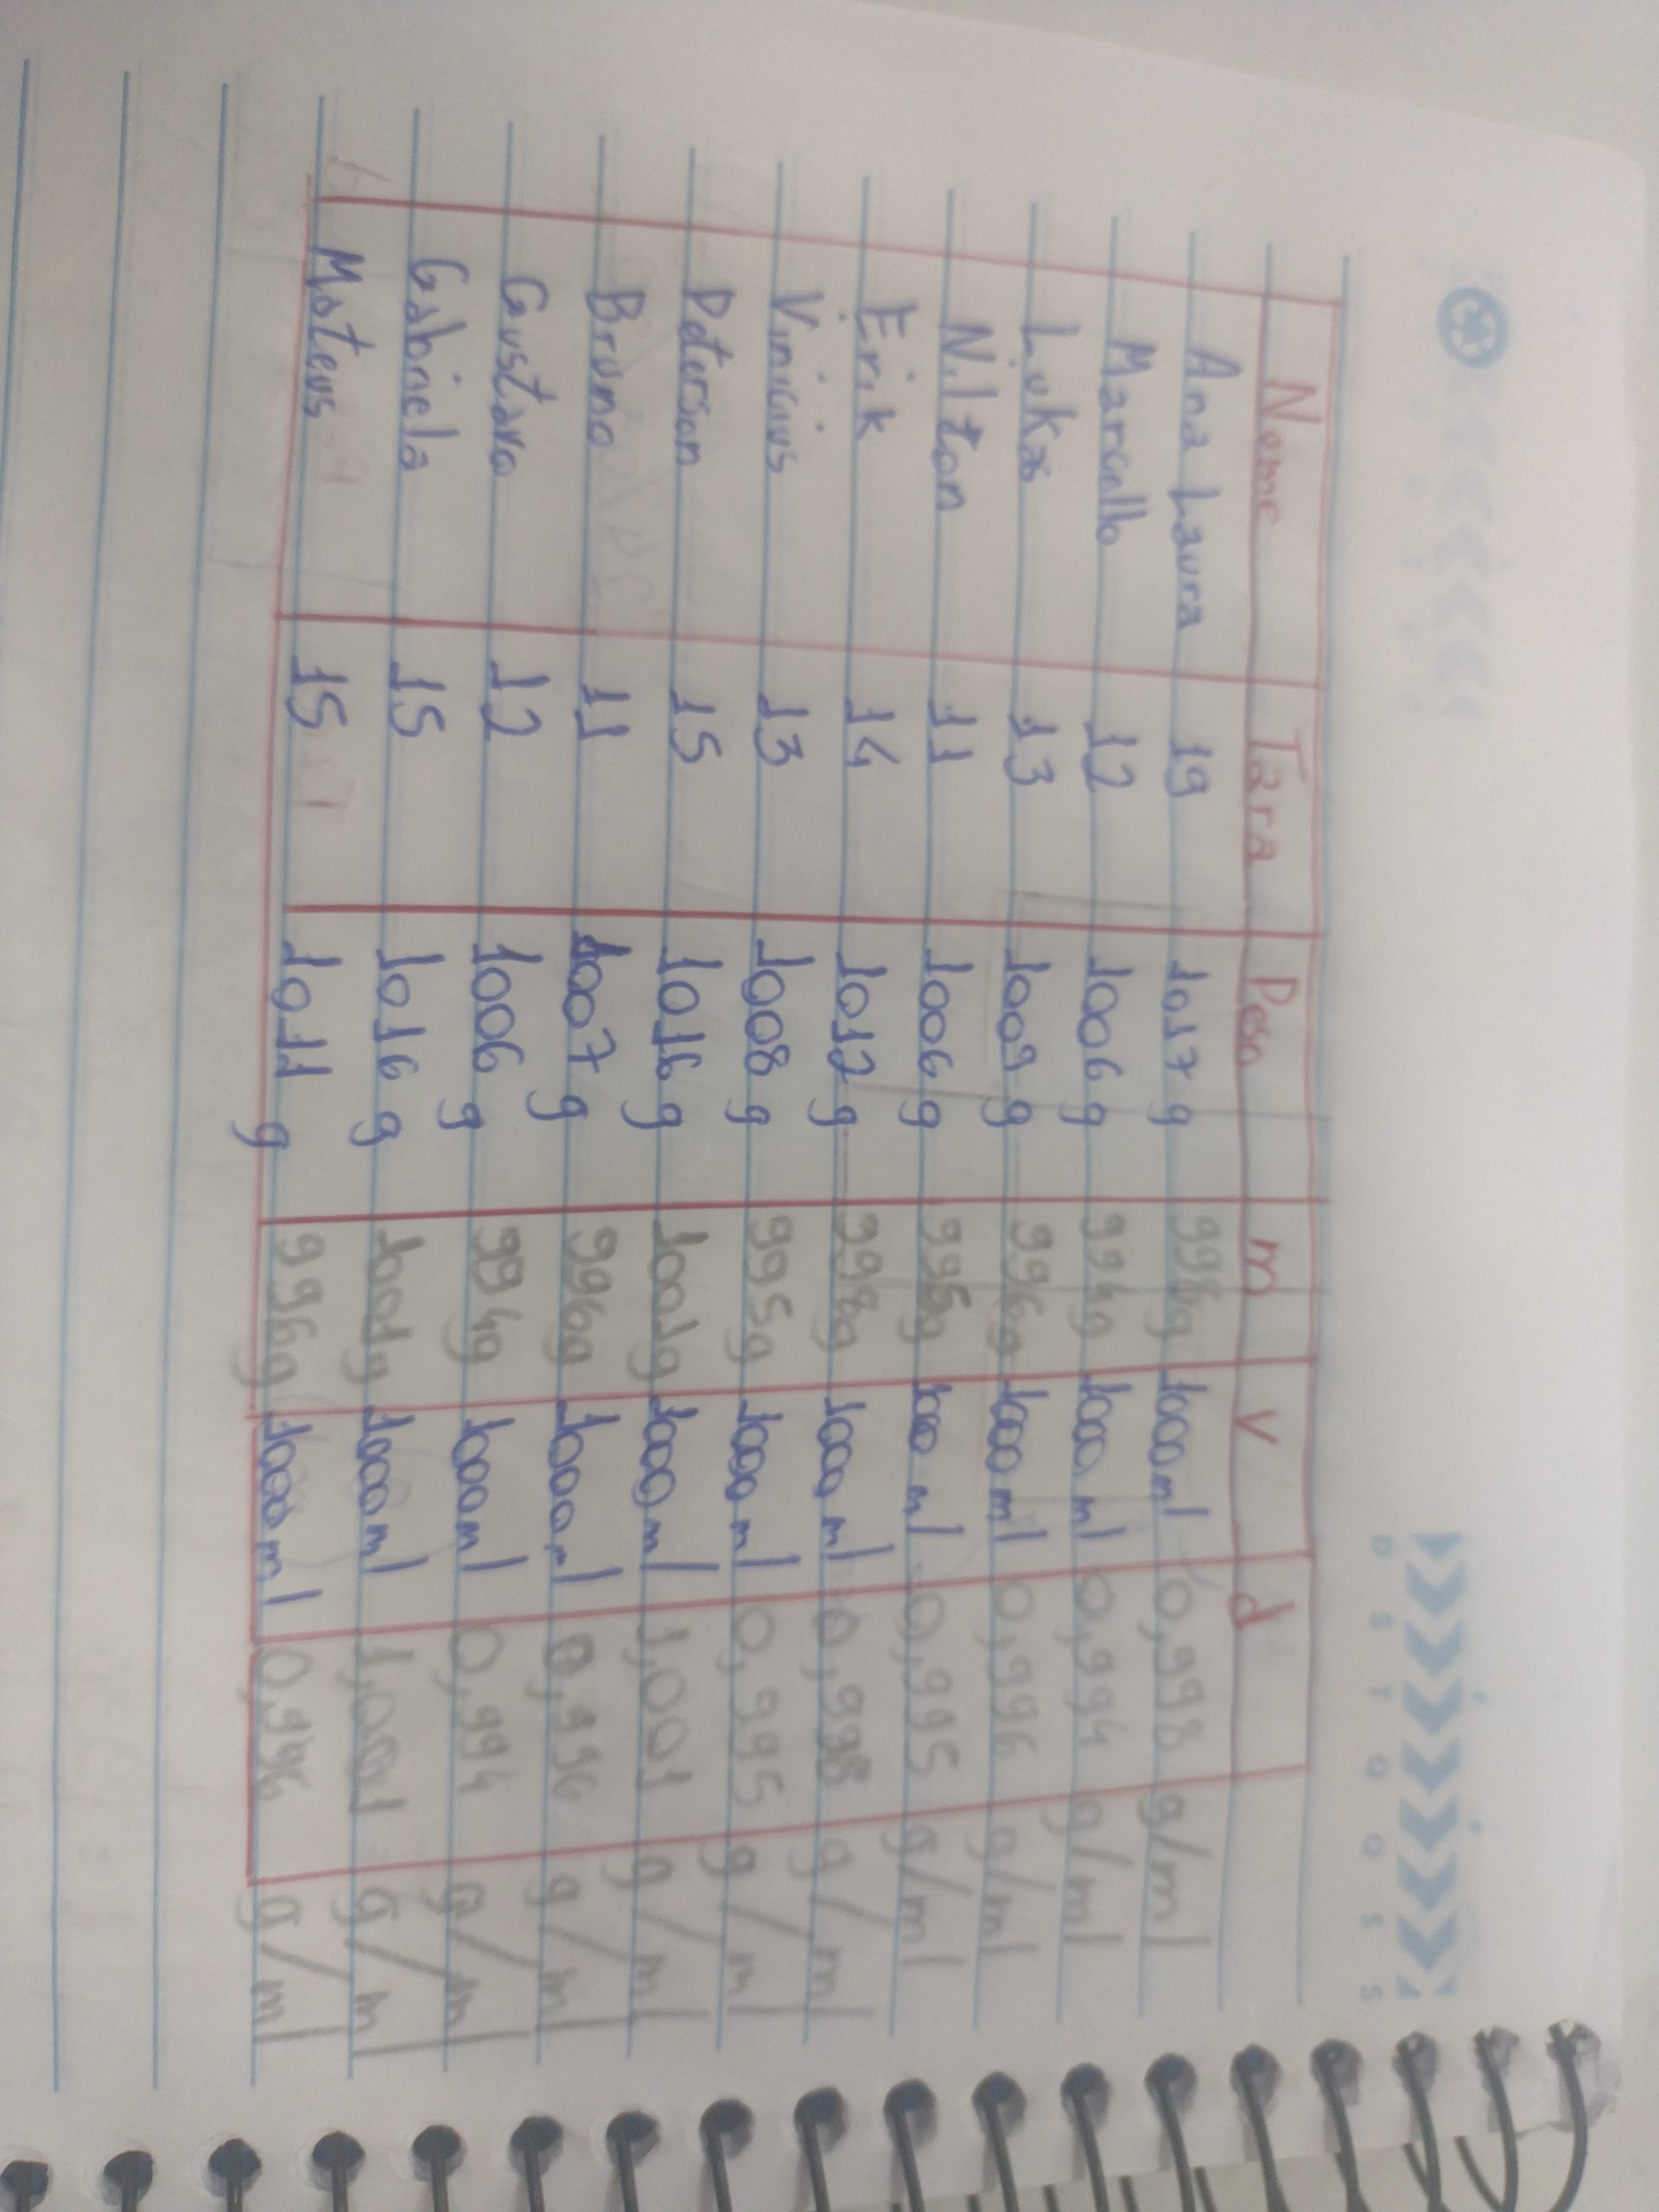 D S T Q Q S S
Nome Tara Peso m V d
Ana Laura 19 1017 g 998g 1000ml 0,998 g/ml
Marcello 12 1006 g 994g 1000 ml 0,994 g/ml
Lukas 13 1009 g 996g 1000 ml 0,996 g/ml
Nilton 11 1006 g 995g 1000 ml 0,995 g/ml
Erik 14 1012 g 998g 1000 ml 0,998 g/ml
Vinicius 13 1008 g 995g 1000 ml 0,995 g/ml
Peterson 15 1016 g 1001g 1000 ml 1,001 g/ml
Bruno 11 1007 g 996g 1000ml 0,996 g/ml
Gustavo 12 1006 g 994g 1000ml 0,994 g/ml
Gabriela 15 1016 g 1001g 1000ml 1,001 g/ml
Mateus 15 1011 g 996g 1000 ml 0,996 g/ml